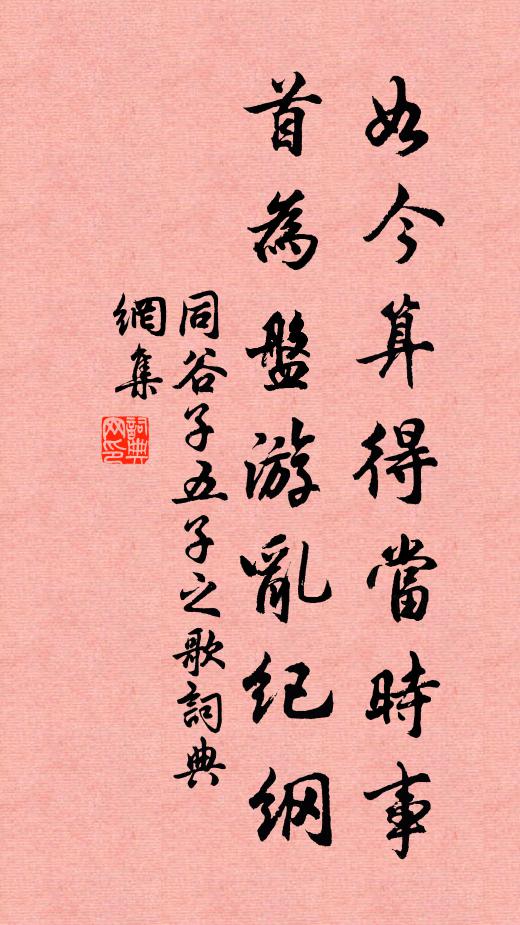 如今算得當時事
首為盤游亂紀綱
同谷子五子之歌詞典
網集
詞典網印